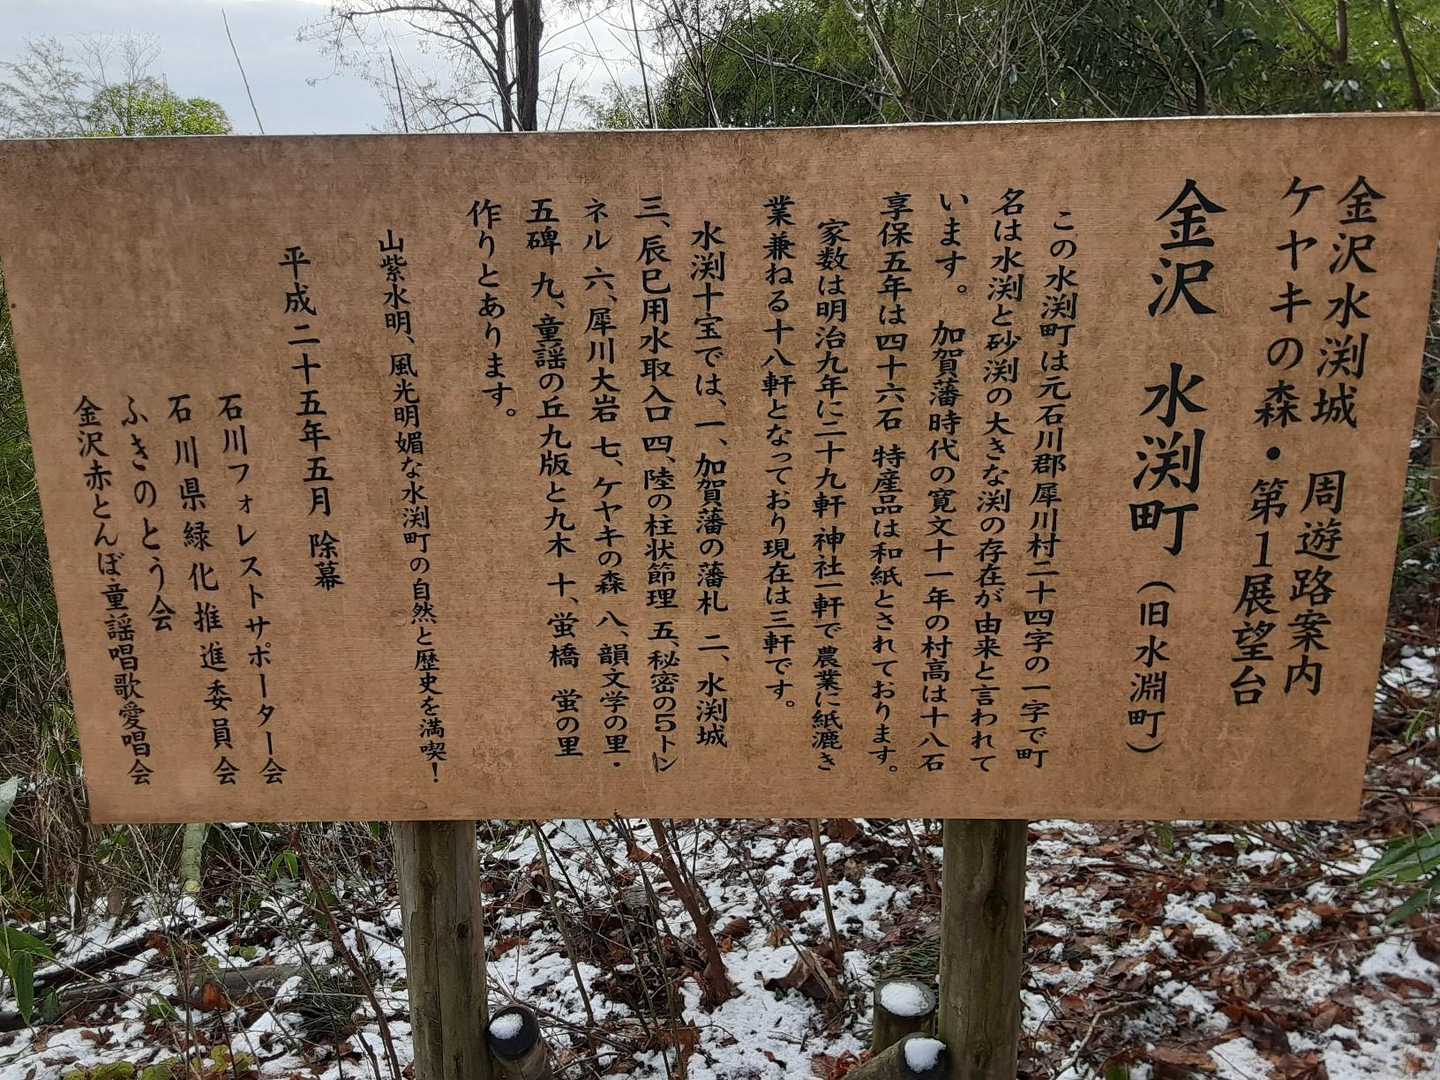 金沢水渕城 周遊路案内
ケヤキの森・第1展望台
金沢 水渕町（旧水淵町）
この水渕町は元石川郡犀川村二十四字の一字で町
名は水渕と砂渕の大きな渕の存在が由来と言われて
います。 加賀藩時代の寛文十一年の村高は十八石
享保五年は四十六石 特産品は和紙とされております。
家数は明治九年に二十九軒 神社一軒で農業に紙漉き
業兼ねる十八軒となっており現在は三軒です。
水渕十宝では、一、加賀藩の藩札 二、水渕城
三、辰巳用水取入口 四、陸の柱状節理 五、秘密の5トン
ネル 六、犀川大岩 七、ケヤキの森 八、韻文学の里・
五碑 九、童謡の丘九版と九木 十、蛍橋 蛍の里
作りとあります。
山紫水明、風光明媚な水渕町の自然と歴史を満喫！
平成二十五年五月 除幕
石川フォレストサポーター会
石川県緑化推進委員会
ふきのとう会
金沢赤とんぼ童謡唱歌愛唱会